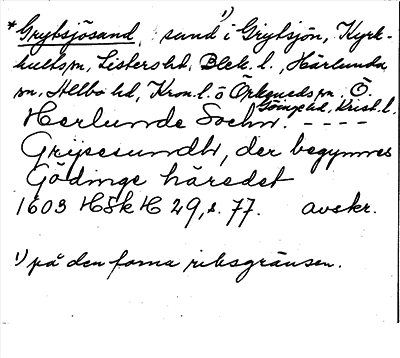 *Grytsjösand, sund¹⁾ i Grytsjön, Kyrk-
hults sn, Listers hd, Blek. l., Härlunda
sn, Allbo hd, Kron. l. o Örkeneds sn, Ö.
Göinge hd, Krist. l.
Herlunde Sochn. - - - -
Grijsesundh, der begynnes
Gödinge häredet
1603 HSkH 29, s. 77. avskr.
¹⁾ på den forna riksgränsen.